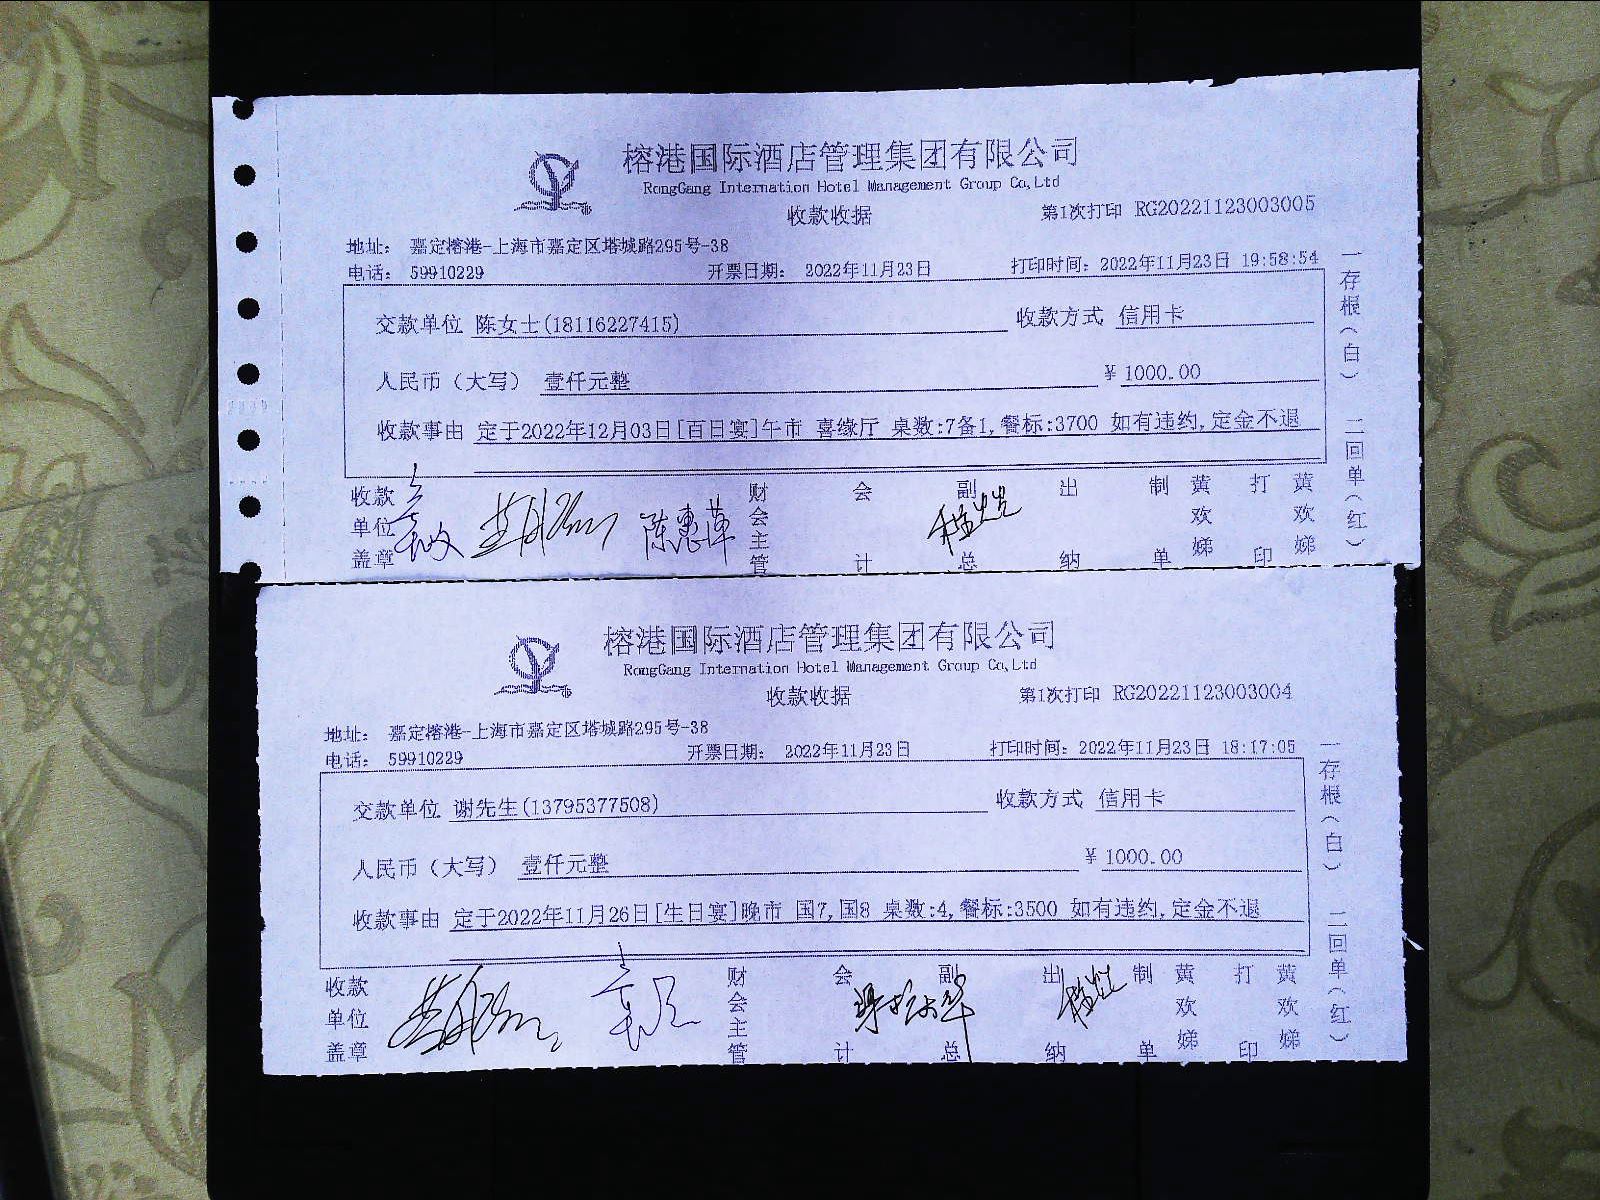 榕港国际酒店管理集团有限公司
RongGang Internation Hotel Management Group Co,Ltd
收款收据 第1次打印 RG20221123003005
地址: 嘉定榕港-上海市嘉定区塔城路295号-38
电话: 59910229 开票日期: 2022年11月23日 打印时间: 2022年11月23日 19:58:54
交款单位 陈女士(18116227415) 收款方式 信用卡
人民币（大写） 壹仟元整 ¥ 1000.00
收款事由 定于2022年12月03日[百日宴]午市 喜缘厅 桌数:7备1,餐标:3700 如有违约,定金不退
一存根(白) 二回单(红)
收款单位盖章 陈惠草 财会主管 会计 副总 出纳 制单 黄欢娣 打印 黄欢娣
榕港国际酒店管理集团有限公司
RongGang Internation Hotel Management Group Co,Ltd
收款收据 第1次打印 RG20221123003004
地址: 嘉定榕港-上海市嘉定区塔城路295号-38
电话: 59910229 开票日期: 2022年11月23日 打印时间: 2022年11月23日 18:17:05
交款单位 谢先生(13795377508) 收款方式 信用卡
人民币（大写） 壹仟元整 ¥ 1000.00
收款事由 定于2022年11月26日[生日宴]晚市 国7,国8 桌数:4,餐标:3500 如有违约,定金不退
一存根(白) 二回单(红)
收款单位盖章 财会主管 会计 副总 出纳 制单 黄欢娣 打印 黄欢娣